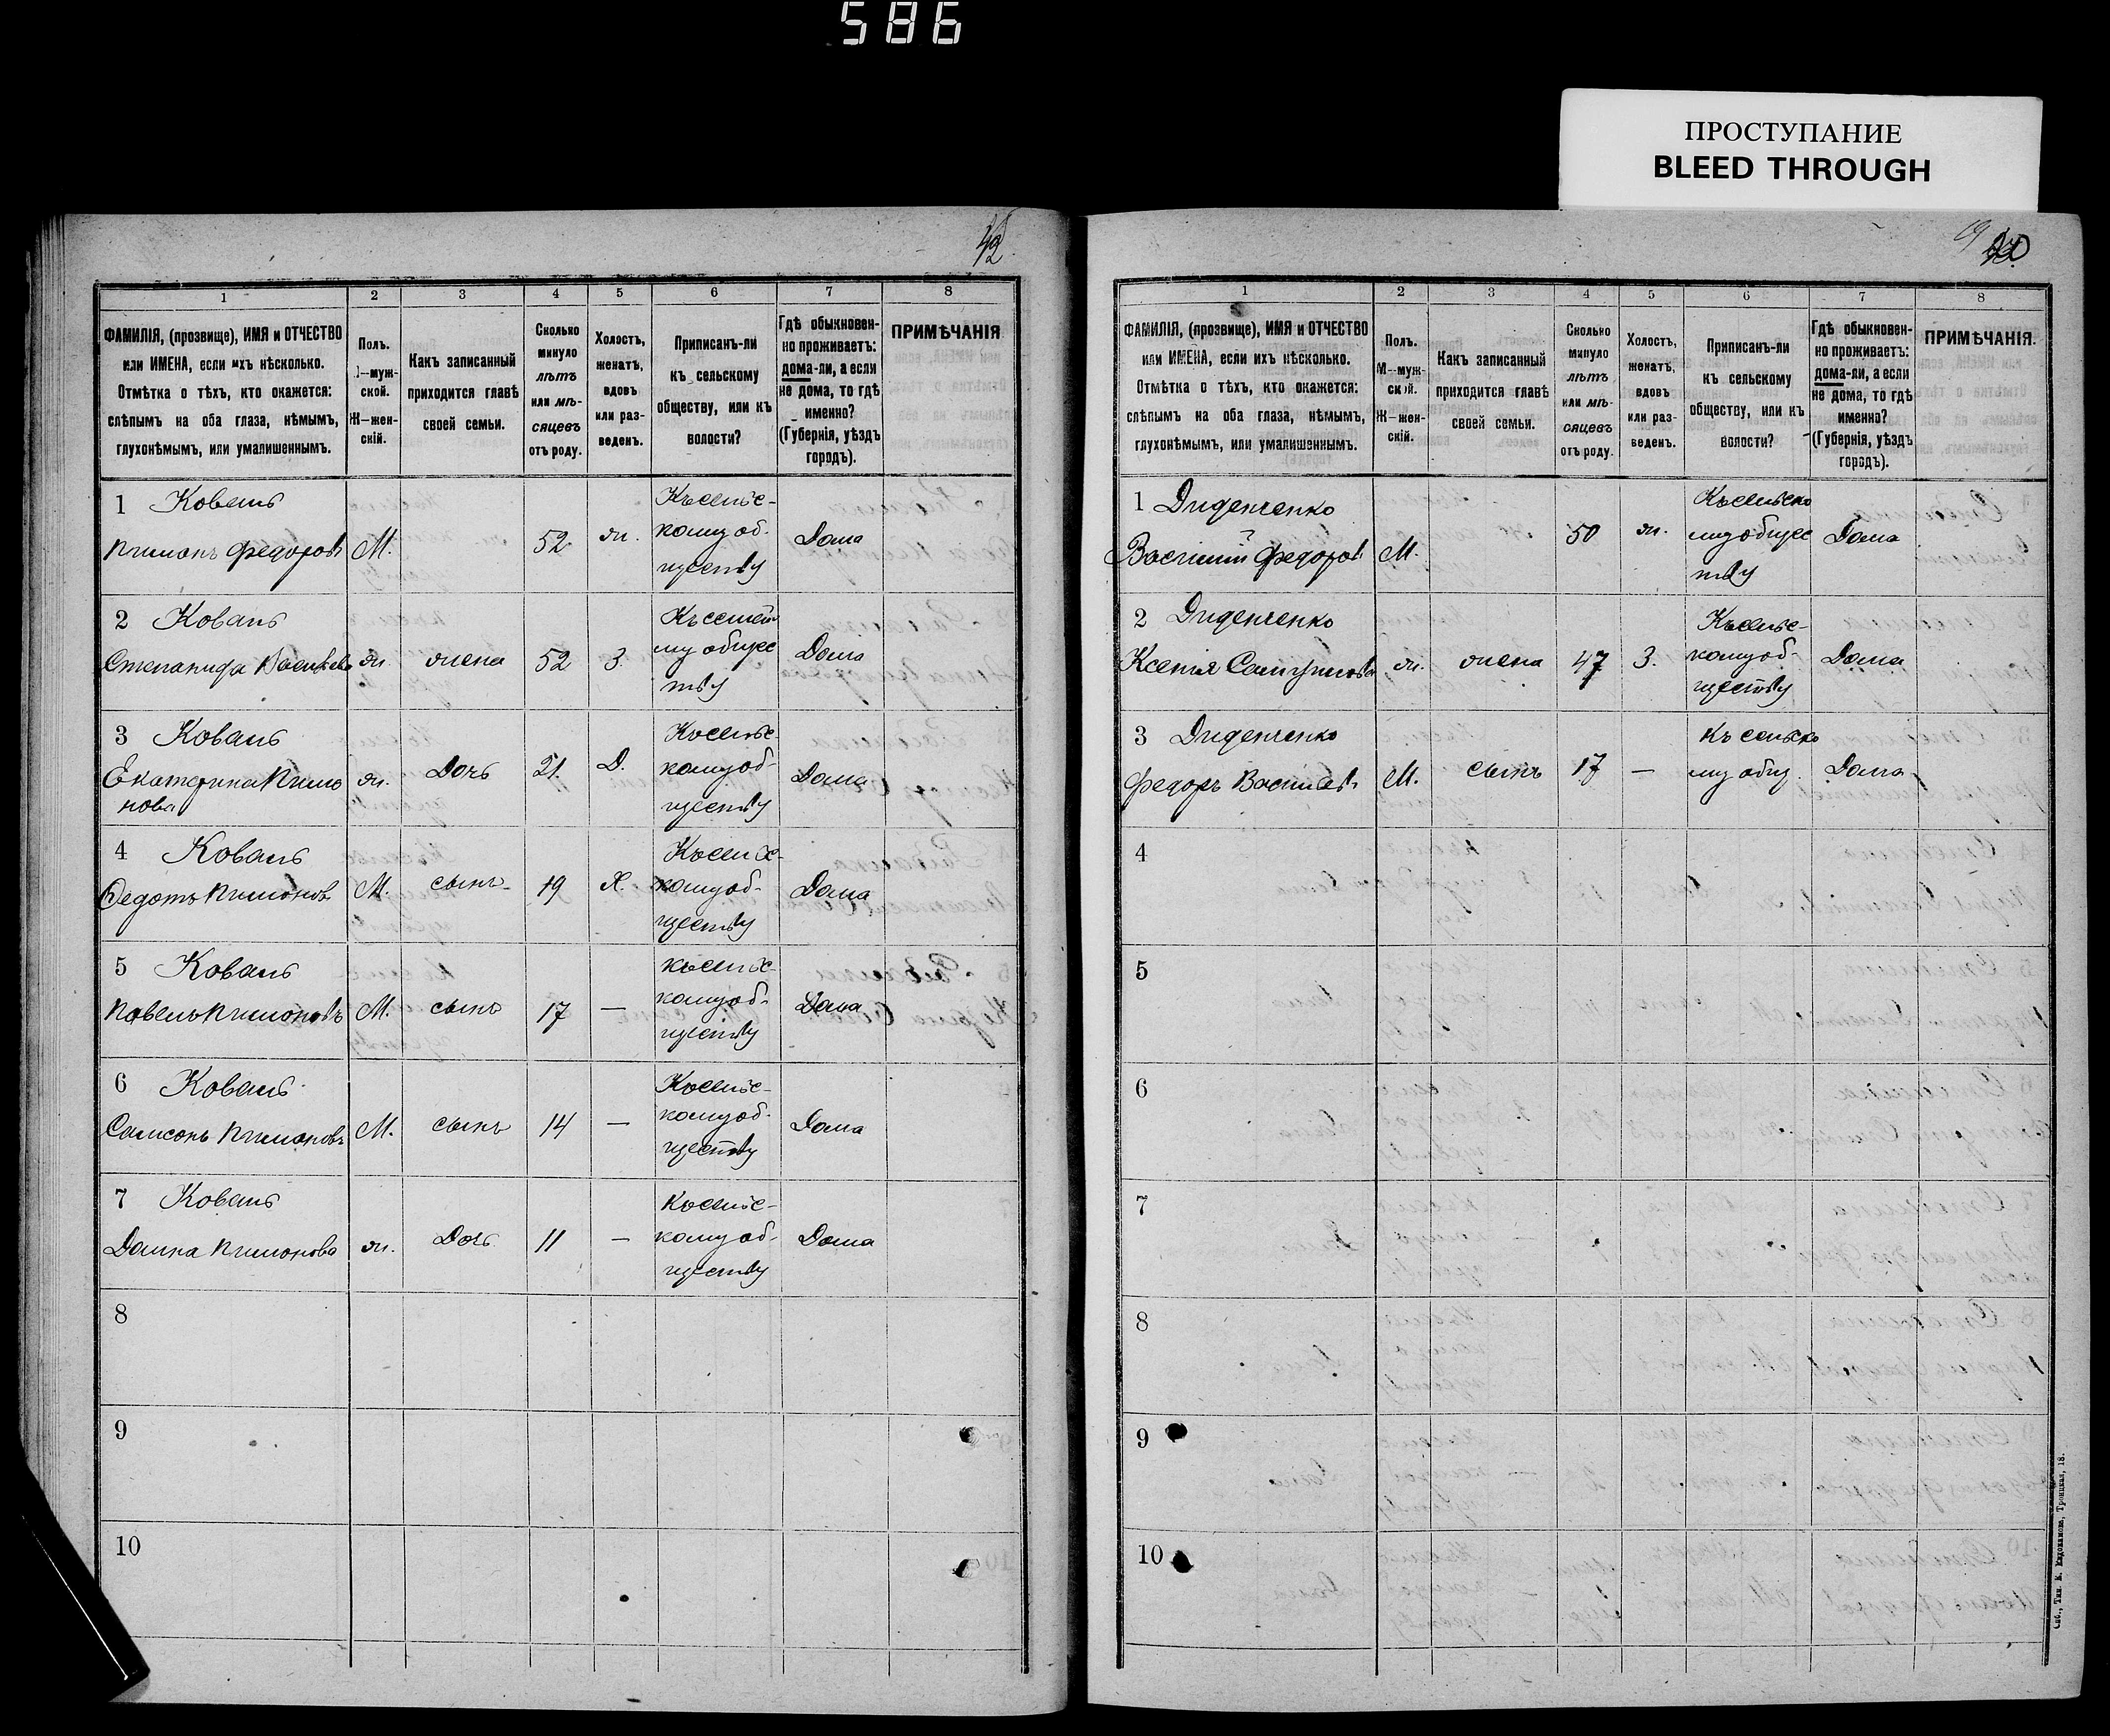 586
ПРОСТУПАНИЕ
BLEED THROUGH
42
1 2 3 4 5 6 7 8
ФАМИЛІЯ, (прозвище), ИМЯ и ОТЧЕСТВО
или ИМЕНА, если ихъ нѣсколько.
Отмѣтка о тѣхъ, кто окажется:
слѣпымъ на оба глаза, нѣмымъ,
глухонѣмымъ, или умалишеннымъ.
Полъ.
М—муж-
ской.
Ж—жен-
скій.
Какъ записанный
приходится главѣ
своей семьи.
Сколько
минуло
лѣтъ
или мѣ-
сяцевъ
отъ роду.
Холостъ,
женатъ,
вдовъ
или раз-
веденъ.
Приписанъ-ли
къ сельскому
обществу, или къ
волости?
Гдѣ обыкновен-
но проживаетъ:
дома-ли, а если
не дома, то гдѣ
именно?
(Губернія, уѣздъ
городъ).
ПРИМѢЧАНІЯ
1 Коваль
Пимонъ Федоровъ
М.
52
ж.
Къ сельс-
кому об-
ществу
Дома
2 Коваль
Степанида Васильева
ж.
жена
52
З.
му общес
тву
Дома
3 Коваль
Екатерина Пимо
нова
ж.
Дочь
21.
Д.
Къ сельс-
кому об-
ществу
Дома
4 Коваль
Федотъ Пимонов
М.
сынъ
19
Х.
Къ сельс-
кому об-
ществу
Дома
5 Коваль
Павелъ Пимоновъ
М.
сынъ
17
—
Къ сельс-
кому об-
ществу
Дома
6 Коваль
Самсонъ Пимоновъ
М.
сынъ
14
—
Къ сельс-
кому об-
ществу
Дома
7 Коваль
Домна Пимонова
ж.
Дочь
11
—
Къ сельс-
кому об-
ществу
Дома
8
9
10
1 2 3 4 5 6 7 8
ФАМИЛІЯ, (прозвище), ИМЯ и ОТЧЕСТВО
или ИМЕНА, если ихъ нѣсколько.
Отмѣтка о тѣхъ, кто окажется:
слѣпымъ на оба глаза, нѣмымъ,
глухонѣмымъ, или умалишеннымъ.
Полъ.
М—муж-
ской.
Ж—жен-
скій.
Какъ записанный
приходится главѣ
своей семьи.
Сколько
минуло
лѣтъ
или мѣ-
сяцевъ
отъ роду.
Холостъ,
женатъ,
вдовъ
или раз-
веденъ.
Приписанъ-ли
къ сельскому
обществу, или къ
волости?
Гдѣ обыкновен-
но проживаетъ:
дома-ли, а если
не дома, то гдѣ
именно?
(Губернія, уѣздъ
городъ).
ПРИМѢЧАНІЯ.
1 Диденченко
Василий Федоровъ
М.
50
ж.
Къ сельско
му общес
тву
Дома
2 Диденченко
Ксенія
ж.
жена
47
З.
Къ сельс-
кому об-
ществу
Дома
3 Диденченко
Федоръ Васильевъ
М.
сынъ
17
—
Къ сельско
му общ.
Дома
4
5
6
7
8
9
10